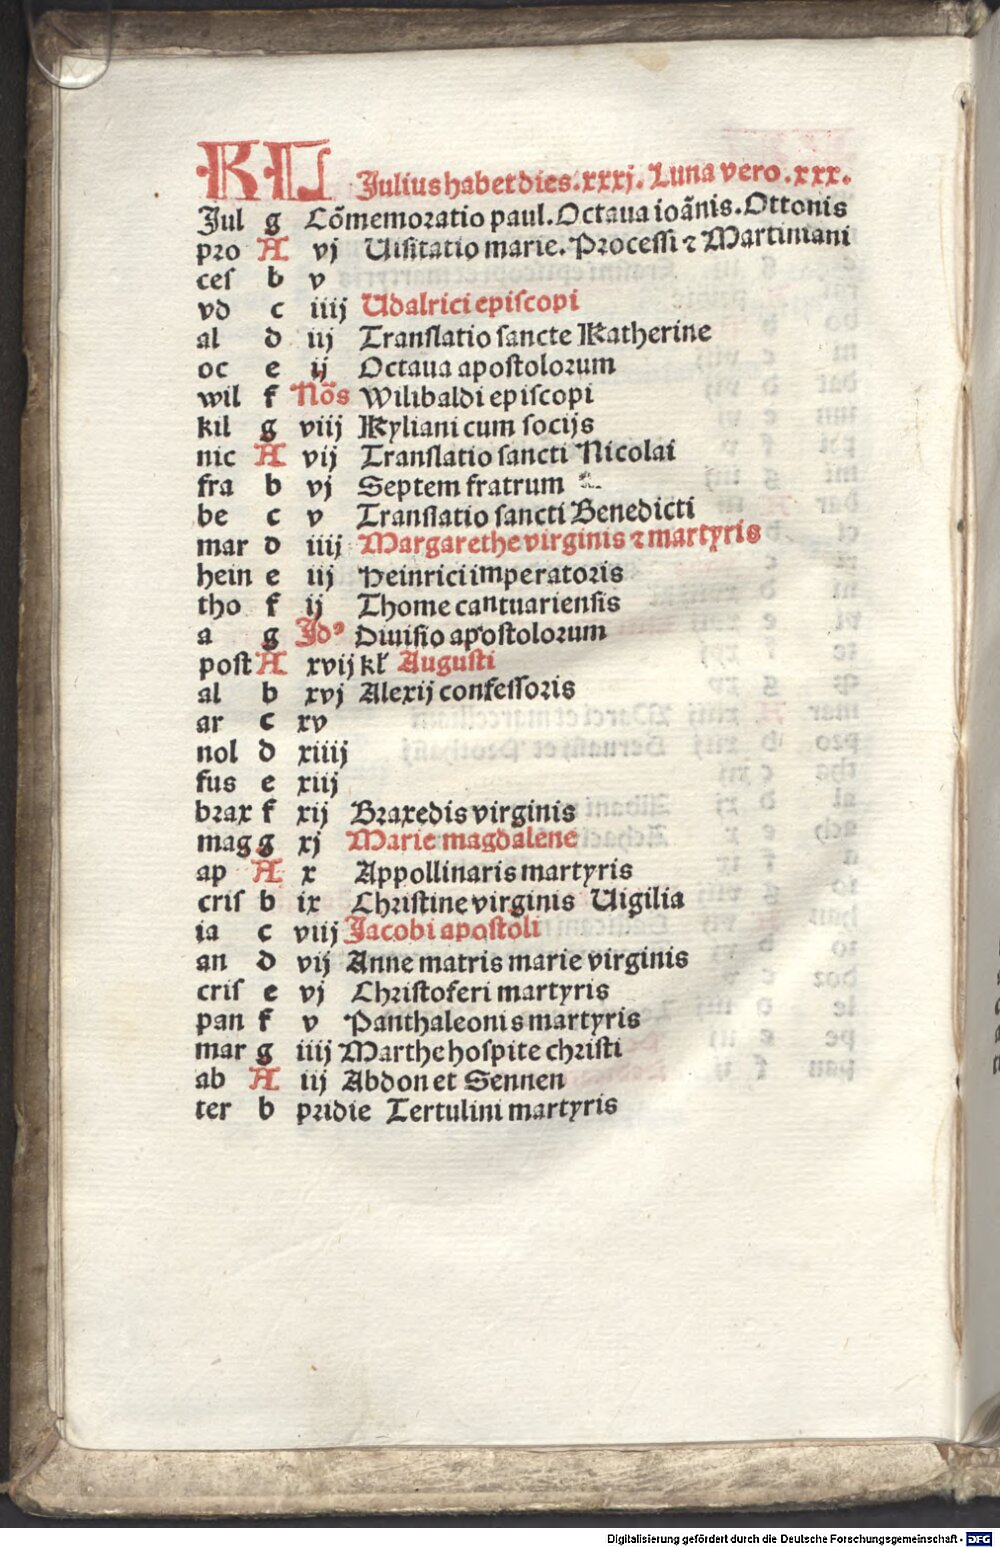 KL Julius habet dies .xxxj. Luna vero .xxx.
Jul g Cõmemoratio paul. Octaua ioãnis. Ottonis
pro A vj Uisitatio marie. Processi ⁊ Martiniani
ces b v
vd c iiij Udalrici episcopi
al d iij Translatio sancte Katherine
oc e ij Octaua apostolorum
wil f Nõs Wilibaldi episcopi
kil g viij Kyliani cum socijs
nic A vij Translatio sancti Nicolai
fra b vj Septem fratrum
be c v Translatio sancti Benedicti
mar d iiij Margarethe virginis ⁊ martyris
hein e iij Heinrici imperatoris
tho f ij Thome cantuariensis
a g Jdꝰ Diuisio apostolorum
post A xvij kł Augusti
al b xvj Alexij confessoris
ar c xv
nol d xiiij
fus e xiij
brax f xij Braxedis virginis
mag g xj Marie magdalene
ap A x Appollinaris martyris
cris b ix Christine virginis Uigilia
ia c viij Jacobi apostoli
an d vij Anne matris marie virginis
cris e vj Christoferi martyris
pan f v Panthaleonis martyris
mar g iiij Marthe hospite christi
ab A iij Abdon et Sennen
ter b pridie Tertulini martyris
Digitalisierung gefördert durch die Deutsche Forschungsgemeinschaft - DFG